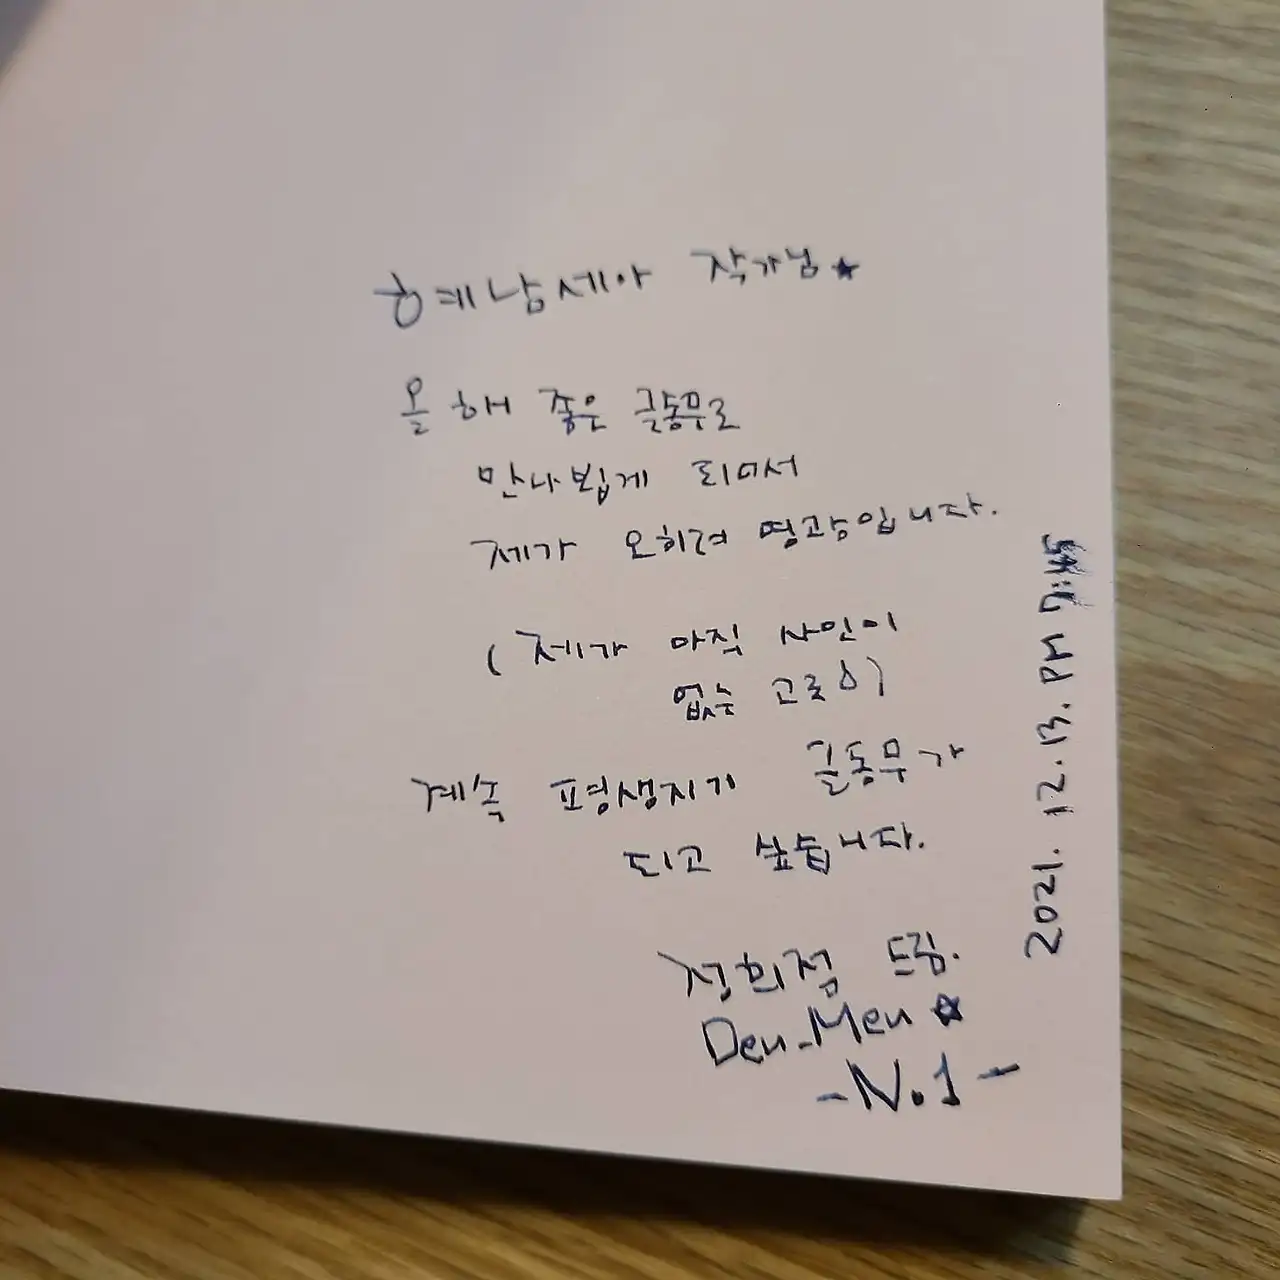 혜남세아 작가님★
올해 좋은 글동무로
만나뵙게 되어서
제가 오히려 영광입니다.
(제가 아직 사인이
없는 고로 )
계속 평생지기 글동무가
되고 싶습니다.
드림.
Den_Men ☆
-N.1-
2021. 12. 13. PM 7:45